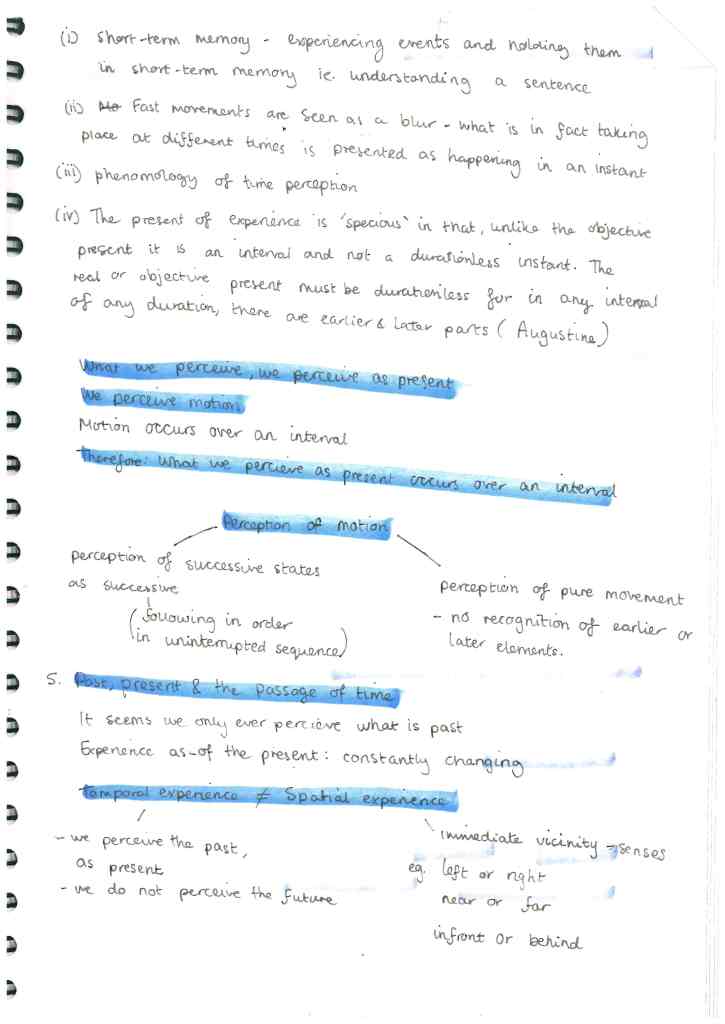 (i) short-term memory - experiencing events and holding them
in short-term memory ie. understanding a sentence
(ii) No Fast movements are seen as a blur - what is in fact taking
place at different times is presented as happening in an instant
(iii) phenomology of time perception
(iv) The present of experience is 'specious' in that, unlike the objective
present it is an interval and not a durationless instant. The
real or objective present must be durationless for in any interval
of any duration, there are earlier & later parts (Augustine)
What we perceive, we perceive as present
We perceive motion
Motion occurs over an interval
Therefore: What we percieve as present occurs over an interval
Perception of motion
perception of successive states
as successive
(following in order
in uninterrupted sequence)
perception of pure movement
- no recognition of earlier or
later elements.
5. Past, present & the passage of time
It seems we only ever percieve what is past
Experience as-of the present: constantly changing
Temporal experience ≠ Spatial experience
- we perceive the past,
as present
- we do not perceive the future
immediate vicinity → senses
eg. left or right
near or far
infront or behind